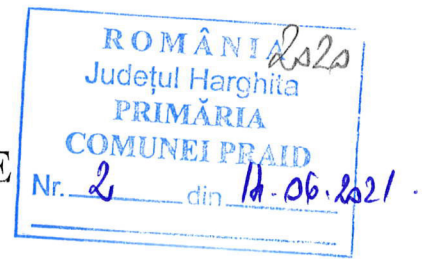 ROMÂNIA 2020
Județul Harghita
PRIMĂRIA
COMUNEI PRAID
E
Nr. 2 din 06.2021.